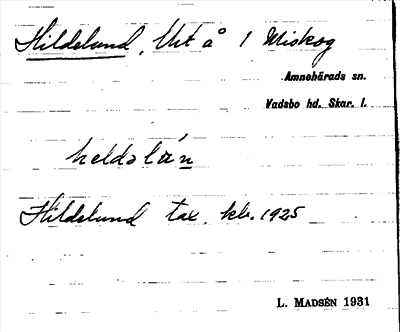 Hildelund, Urt å 1 Miskog
Amnehärads sn.
Vadsbo hd. Skar. l.
heldəlún
Hildelund tax. kb. 1925
L. MADSÉN 1931